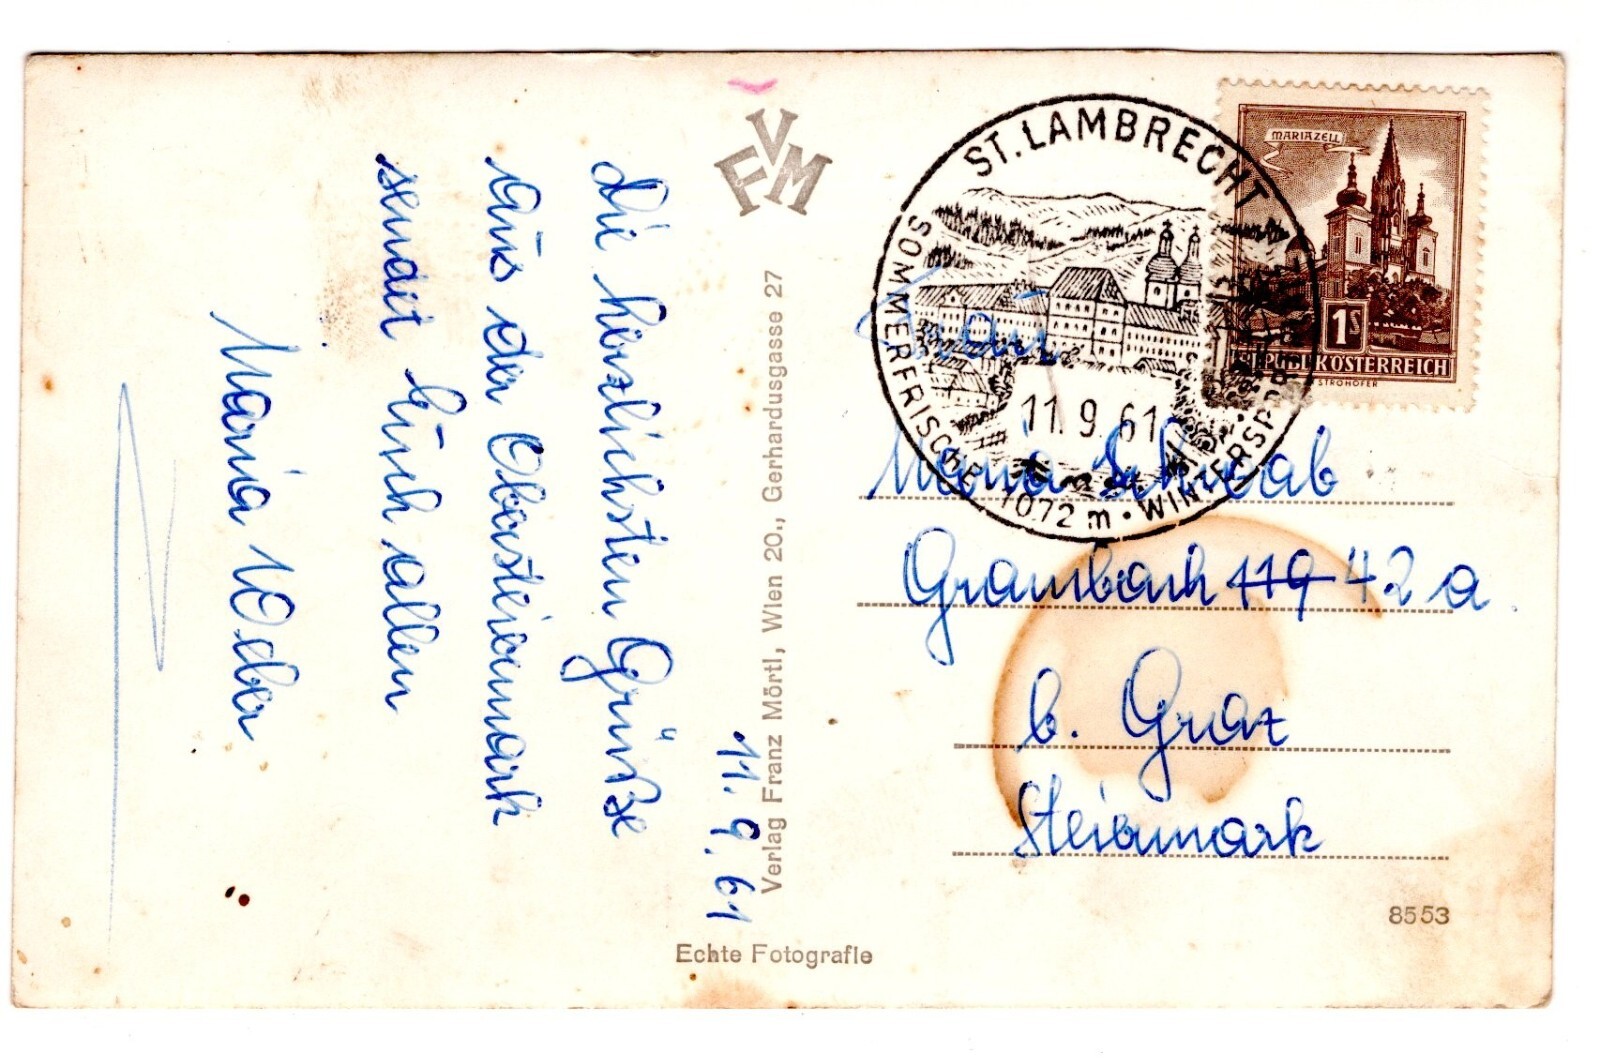 11.9.61
Die herzlichsten Grüße
aus der Obersteiermark
sendet Euch allen
Maria Weber
FVM
Verlag Franz Mörtl, Wien 20., Gerhardusgasse 27
Echte Fotografie
ST. LAMBRECHT
SOMMERFRISCHE 1072 m · WINTERSPORT
11.9.61
MARIAZELL
1S
REPUBLIK ÖSTERREICH
STROHOFER
Frau
Maria Schwab
Grambach 119 42 a
b. Graz
Steiermark
8553